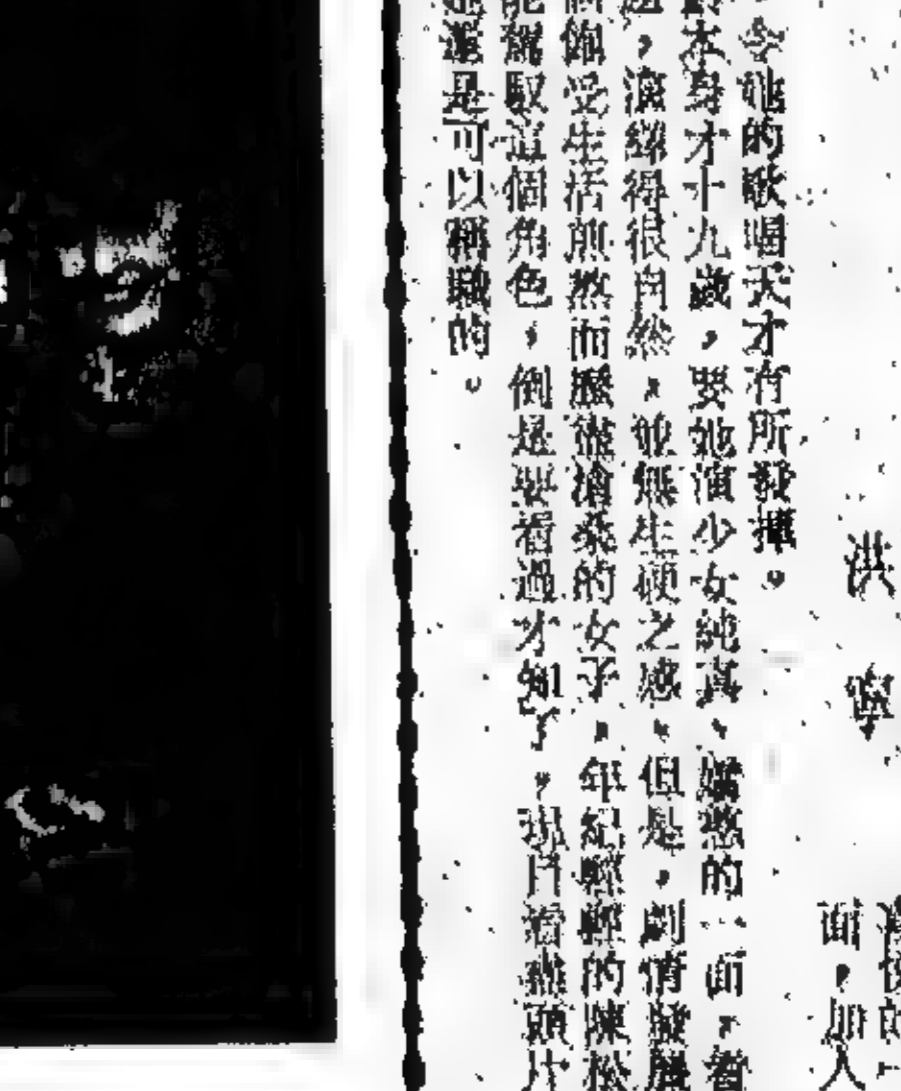 面，加入
洪寧
令她的歌唱天才有所發揮。
本身才十九歲，要她演少女純真、嬌憨的一面，着
，演繹得很自然，並無生硬之感，但是，劇情發展
飽受生活煎熬而歷盡滄桑的女子，年紀輕輕的陳松
駕馭這個角色，倒是要看過才知了，現目看盡頭片
還是可以稱職的。